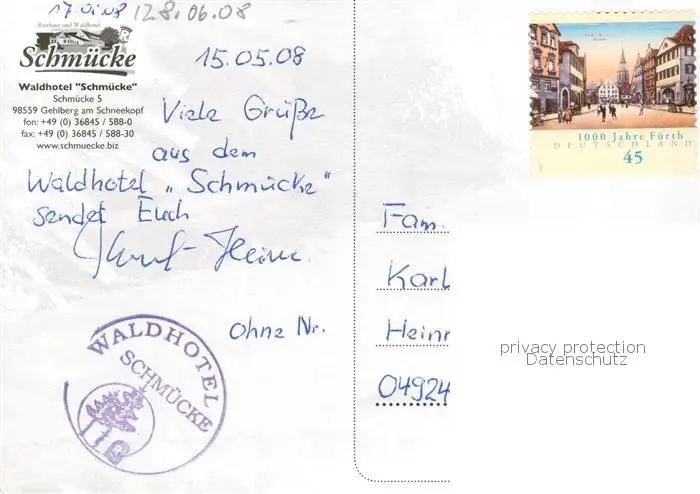 17.01.08 128.06.08
Rasthaus und Waldhotel
Schmücke
Waldhotel "Schmücke"
Schmücke 5
98559 Gehlberg am Schneekopf
fon: +49 (0) 36845 / 588-0
fax: +49 (0) 36845 / 588-30
www.schmuecke.biz
15.05.08
Viele Grüße
aus dem
Waldhotel „Schmücke"
sendet Euch
Ohne Nr.
WALDHOTEL
SCHMÜCKE
1000 Jahre Fürth
DEUTSCHLAND
45
Fam.
Karl
Heinr
04924
privacy protection
Datenschutz